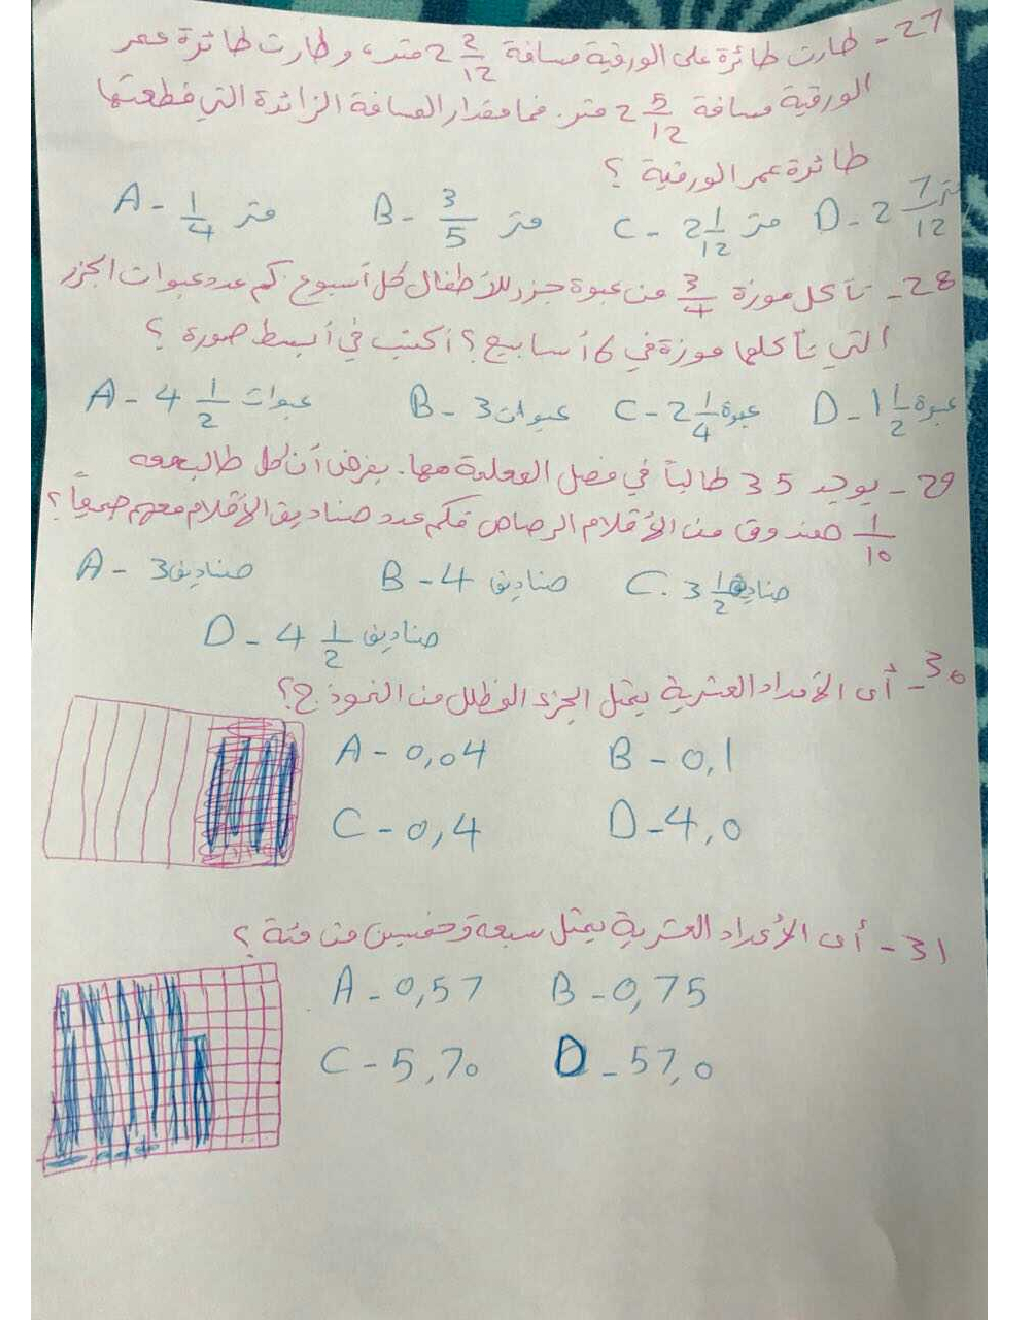 27- طارت طائرة على الورقية مسافة 2 2/12 متر، وطارت طائرة عمر
الورقية مسافة 2 5/12 متر. فما مقدار المسافة الزائدة التي قطعتها
طائرة عمر الورقية ؟
A- 1/4 متر B- 3/5 متر C- 2 1/12 متر D- 2 7/12 متر
28- تأكل موزة 3/4 من عبوة جزر للأطفال كل أسبوع كم عدد عبوات الجزر
التي تأكلها موزة في 6 أسابيع ؟ أكتب في أبسط صورة ؟
A- 4 1/2 عبوات B- 3 عبوات C- 2 1/4 عبوة D- 1 1/2 عبوة
29- يوجد 35 طالباً في فصل المعلمة مها. بفرض أن كل طالب معه
1/10 صندوق من الأقلام الرصاص فكم عدد صناديق الأقلام معهم جميعاً ؟
A- 3 صناديق B- 4 صناديق C. 3 1/2 صناديق
D- 4 1/2 صناديق
30- أى الأعداد العشرية يمثل الجزء المظلل من النموذج ؟
A- 0,04 B- 0,1
C- 0,4 D- 4,0
31- أى الأعداد العشرية يمثل سبعة وخمسين من مئة ؟
A- 0,57 B- 0,75
C- 5,70 D- 57,0